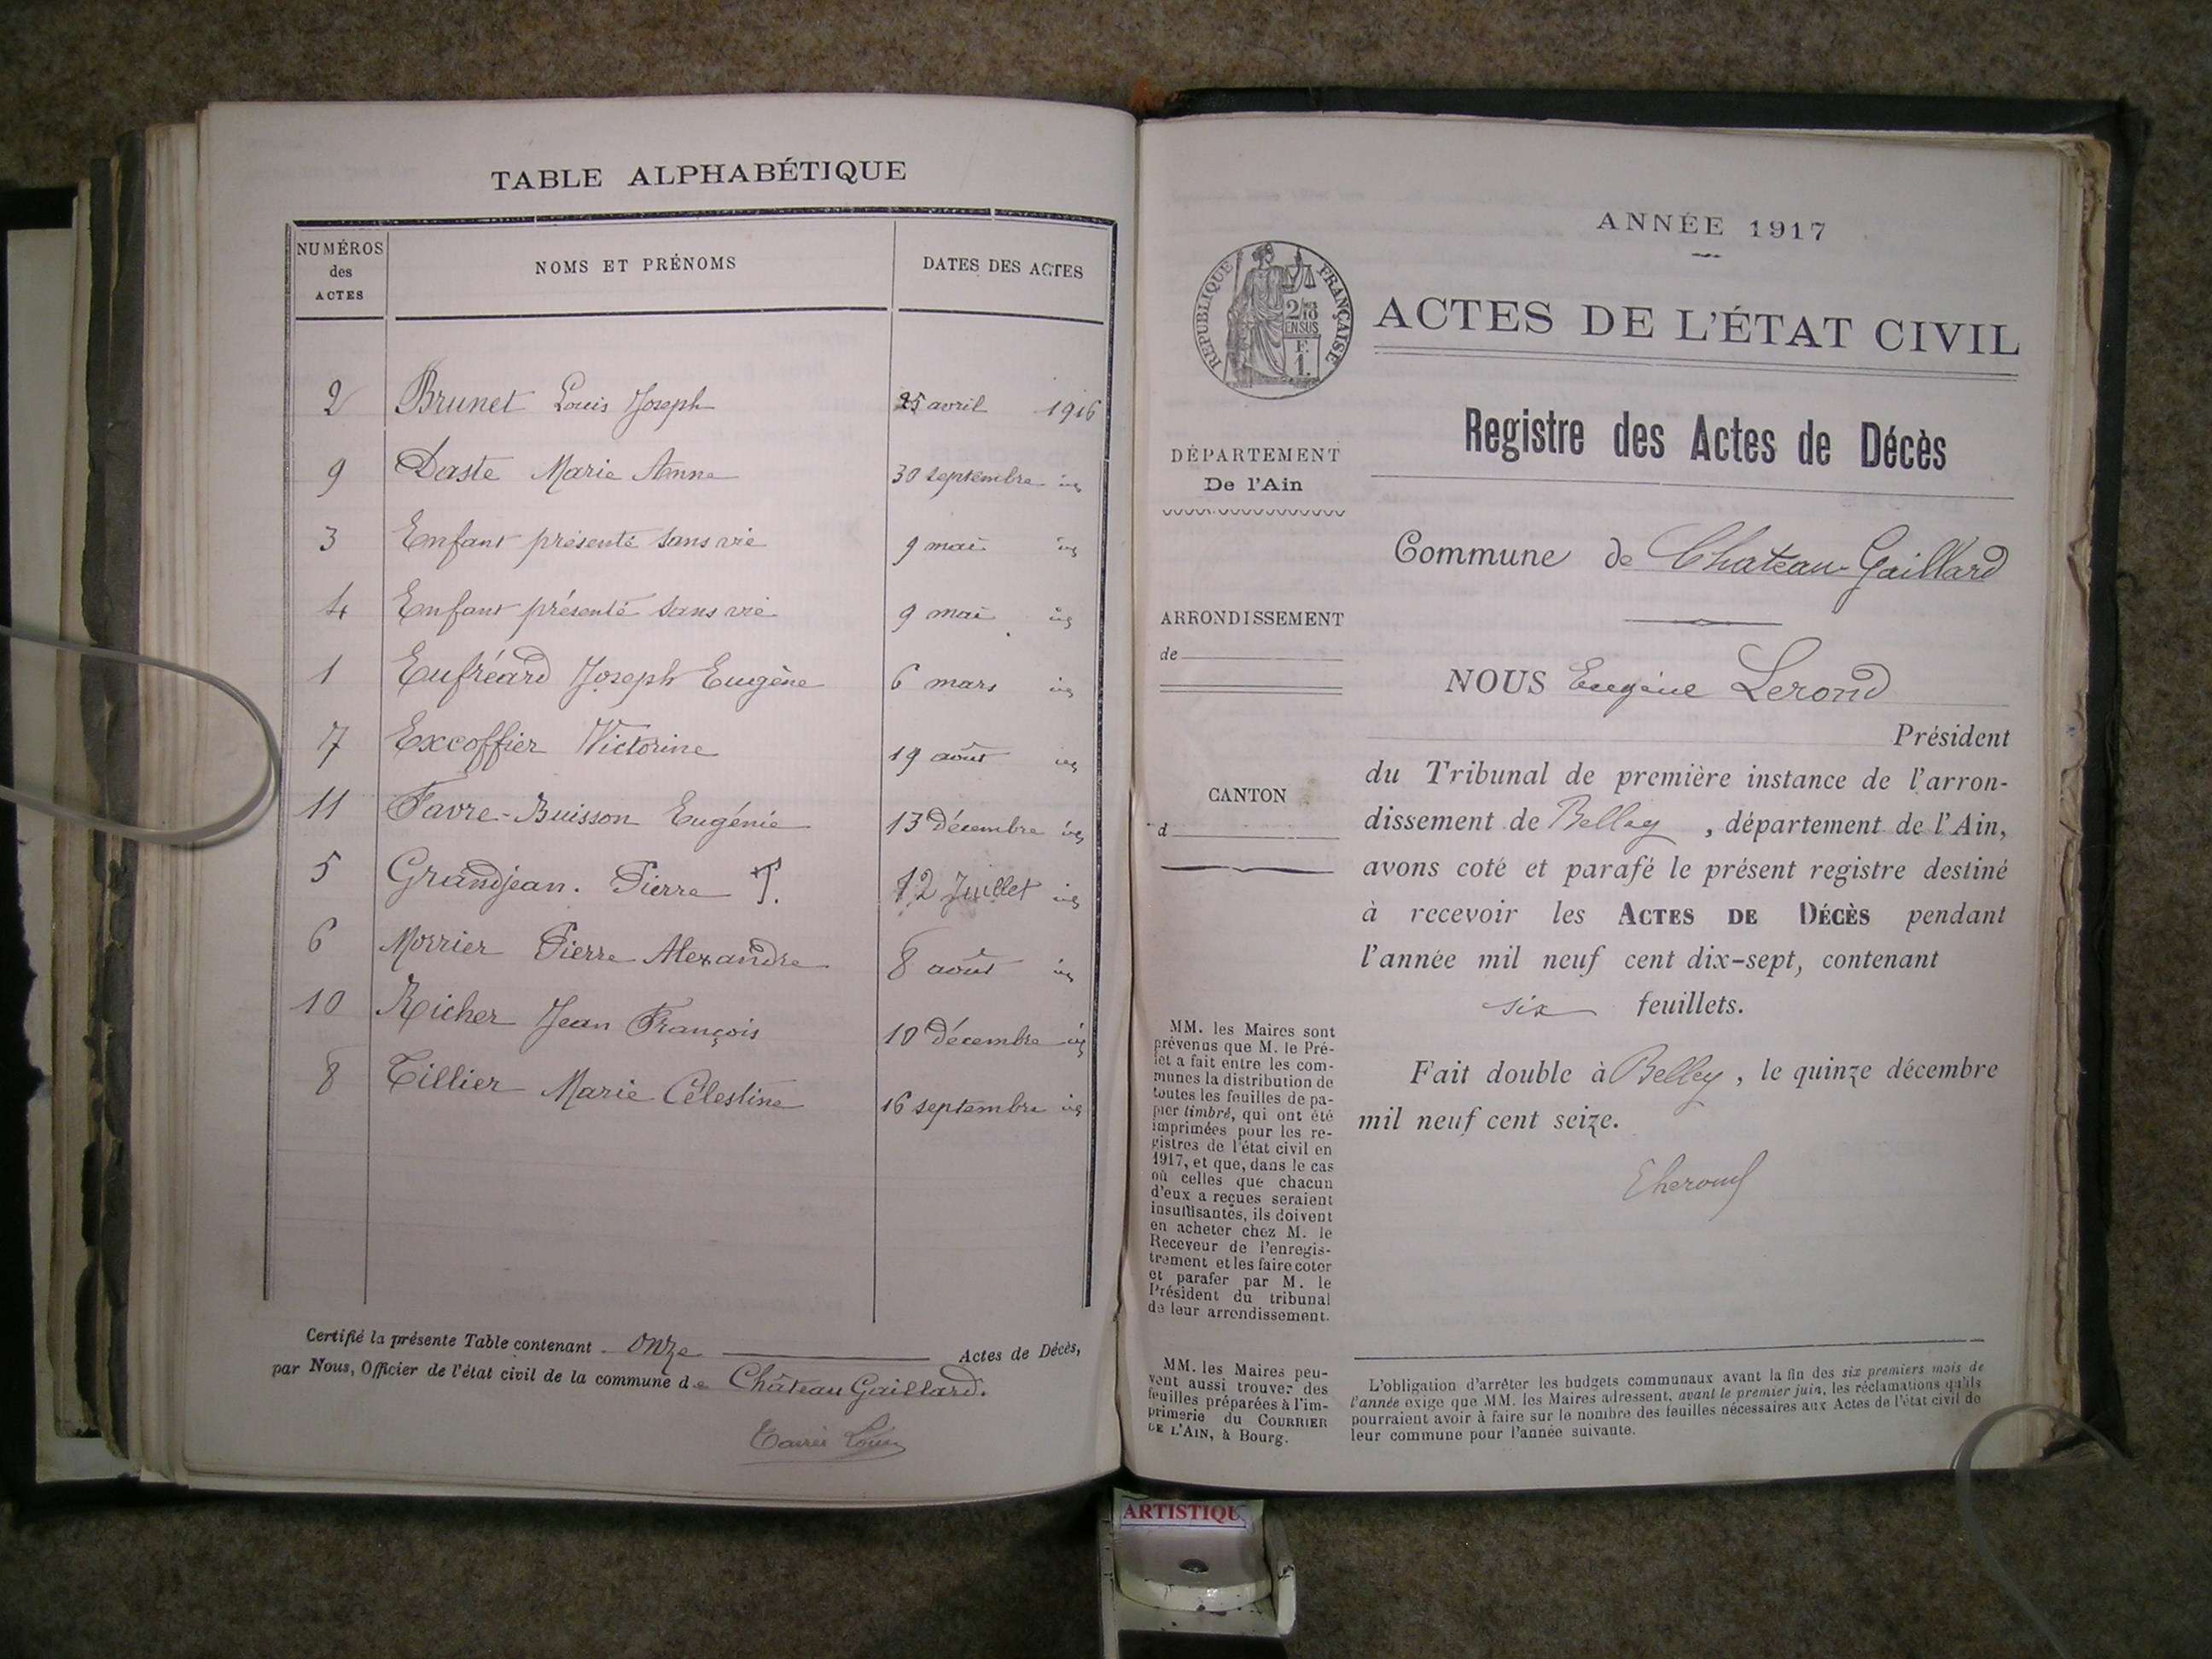 TABLE ALPHABÉTIQUE
NUMÉROS
des
ACTES
NOMS ET PRÉNOMS
DATES DES ACTES
2 Brunet Louis Joseph 25 avril 1916
9 Daste Marie Anna 30 septembre
3 Enfant présenté sans vie 9 mai
4 Enfant présenté sans vie 9 mai
1 Eufréard Joseph Eugène 6 mars
7 Excoffier Victorine 19 août
11 Favre-Buisson Eugénie 13 Décembre
5 Grandjean. Pierre 12 Juillet
6 Morrier Pierre Alexandre 8 août
10 Richer Jean François 10 Décembre
8 Tillier Marie Célestine 16 septembre
Certifié la présente Table contenant onze Actes de Décès,
par Nous, Officier de l'état civil de la commune de Château Gaillard.
ANNÉE 1917
RÉPUBLIQUE FRANÇAISE
2/10
EN SUS
F.
1.
ACTES DE L'ÉTAT CIVIL
Registre des Actes de Décès
DÉPARTEMENT
De l'Ain
Commune de Chateau-Gaillard
ARRONDISSEMENT
de
NOUS Eugène Lerond
Président
CANTON
d
du Tribunal de première instance de l'arron-
dissement de Belley, département de l'Ain,
avons coté et parafé le présent registre destiné
à recevoir les ACTES DE DÉCÈS pendant
l'année mil neuf cent dix-sept, contenant
six feuillets.
Fait double à Belley, le quinze décembre
mil neuf cent seize.
MM. les Maires sont
prévenus que M. le Pré-
fet a fait entre les com-
munes la distribution de
toutes les feuilles de pa-
pier timbré, qui ont été
imprimées pour les re-
gistres de l'état civil en
1917, et que, dans le cas
où celles que chacun
d'eux a reçues seraient
insuffisantes, ils doivent
en acheter chez M. le
Receveur de l'enregis-
trement et les faire coter
et parafer par M. le
Président du tribunal
de leur arrondissement.
MM. les Maires peu-
vent aussi trouver des
feuilles préparées à l'im-
primerie du COURRIER
DE L'AIN, à Bourg.
L'obligation d'arrêter les budgets communaux avant la fin des six premiers mois de
l'année exige que MM. les Maires adressent, avant le premier juin, les réclamations qu'ils
pourraient avoir à faire sur le nombre des feuilles nécessaires aux Actes de l'état civil de
leur commune pour l'année suivante.
ARTISTIQU